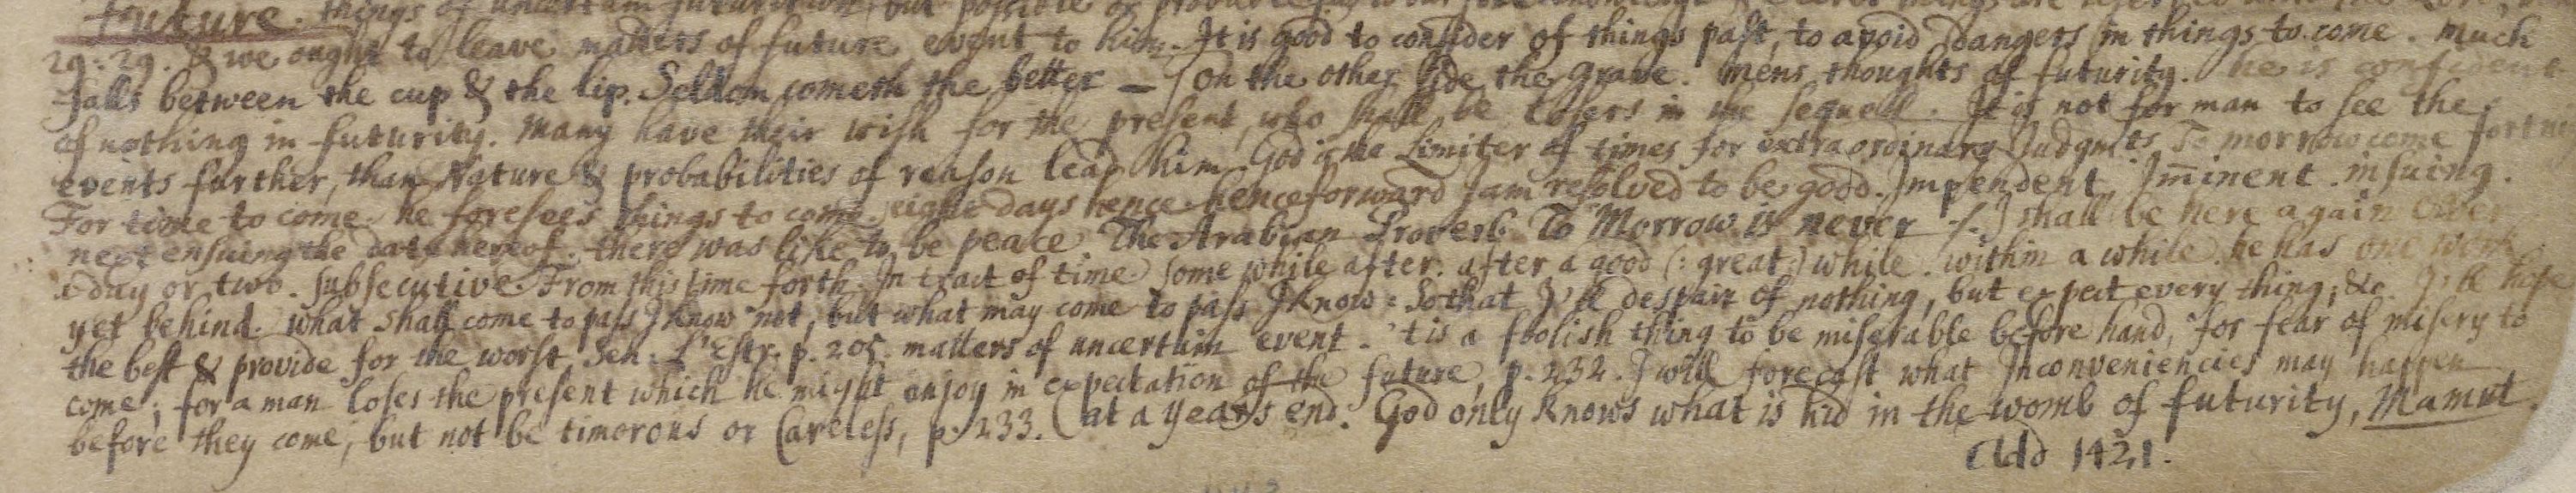 Future. things of uncertain futurition, but possible or probable
29. 29. & we ought to leave matters of future event to him. It is good to consider of things past, to avoid dangers in things to come. Much
falls between the cup & the lip. Seldom cometh the better — / on the other side the Grave. Mens thoughts of futurity. he is confident
of nothing in futurity. Many have their wish for the present, who shall be losers in the sequell. It is not for man to see the
events further, than Nature & probabilities of reason lead him. God is the Limiter of times for extraordinary Judgmts. To morrow come
For time to come. he foresees things to come. eight days hence. henceforward I am resolved to be good. Impendent, Im̄inent. insuing.
next ensuing the date hereof. there was like to be peace. The Arabian Proverb To Morrow is never -/. I shall be here again
a day or two. subsecutive. From this time forth. In tract of time some while after. after a good (: great:) while. within a while. he has one work
yet behind. what shall come to pass I know not, but what may come to pass I know: So that I'le despair of nothing, but expect every thing; &c. I'le hope
the best & provide for the worst. Sen. L'Estr. p. 205. matters of uncertain event. 'tis a foolish thing to be miserable before hand, for fear of misery to
come; for a man loses the present which he might enjoy in expectation of the future, p. 232. I will forecast what Inconveniencies may happen
before they come, but not be timorous or Careless, p. 233. (at a years end. God only knows what is hid in the womb of futurity, Mamut.
Add 1421.